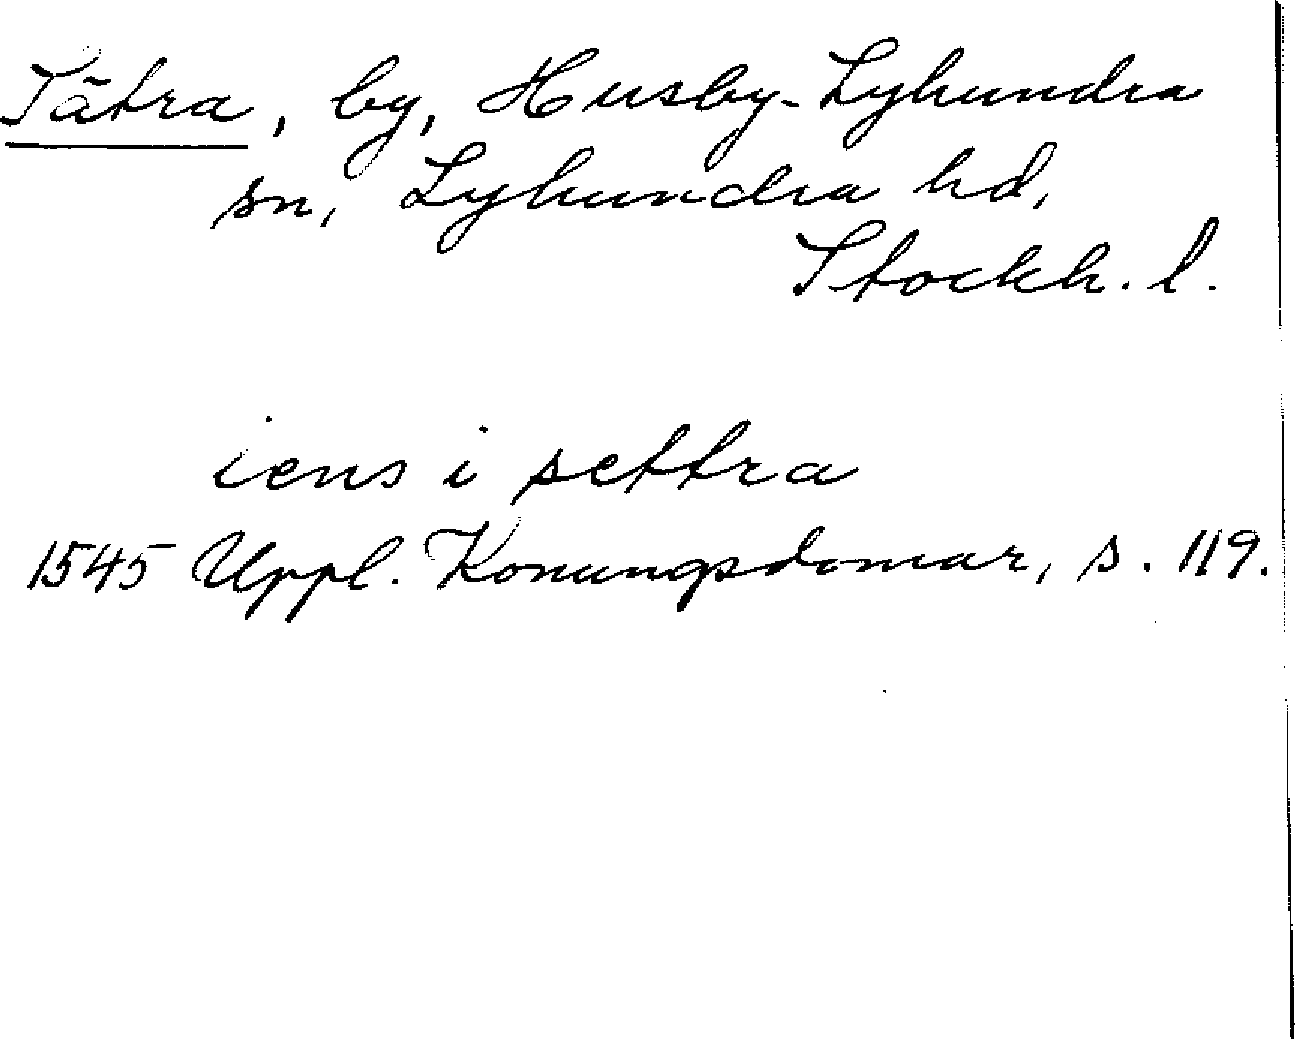 Sätra, by, Husby-Lyhundra
sn, Lyhundra hd,
Stockh. l.
iens i settra
1545 Uppl. Konungsdomar, s. 119.